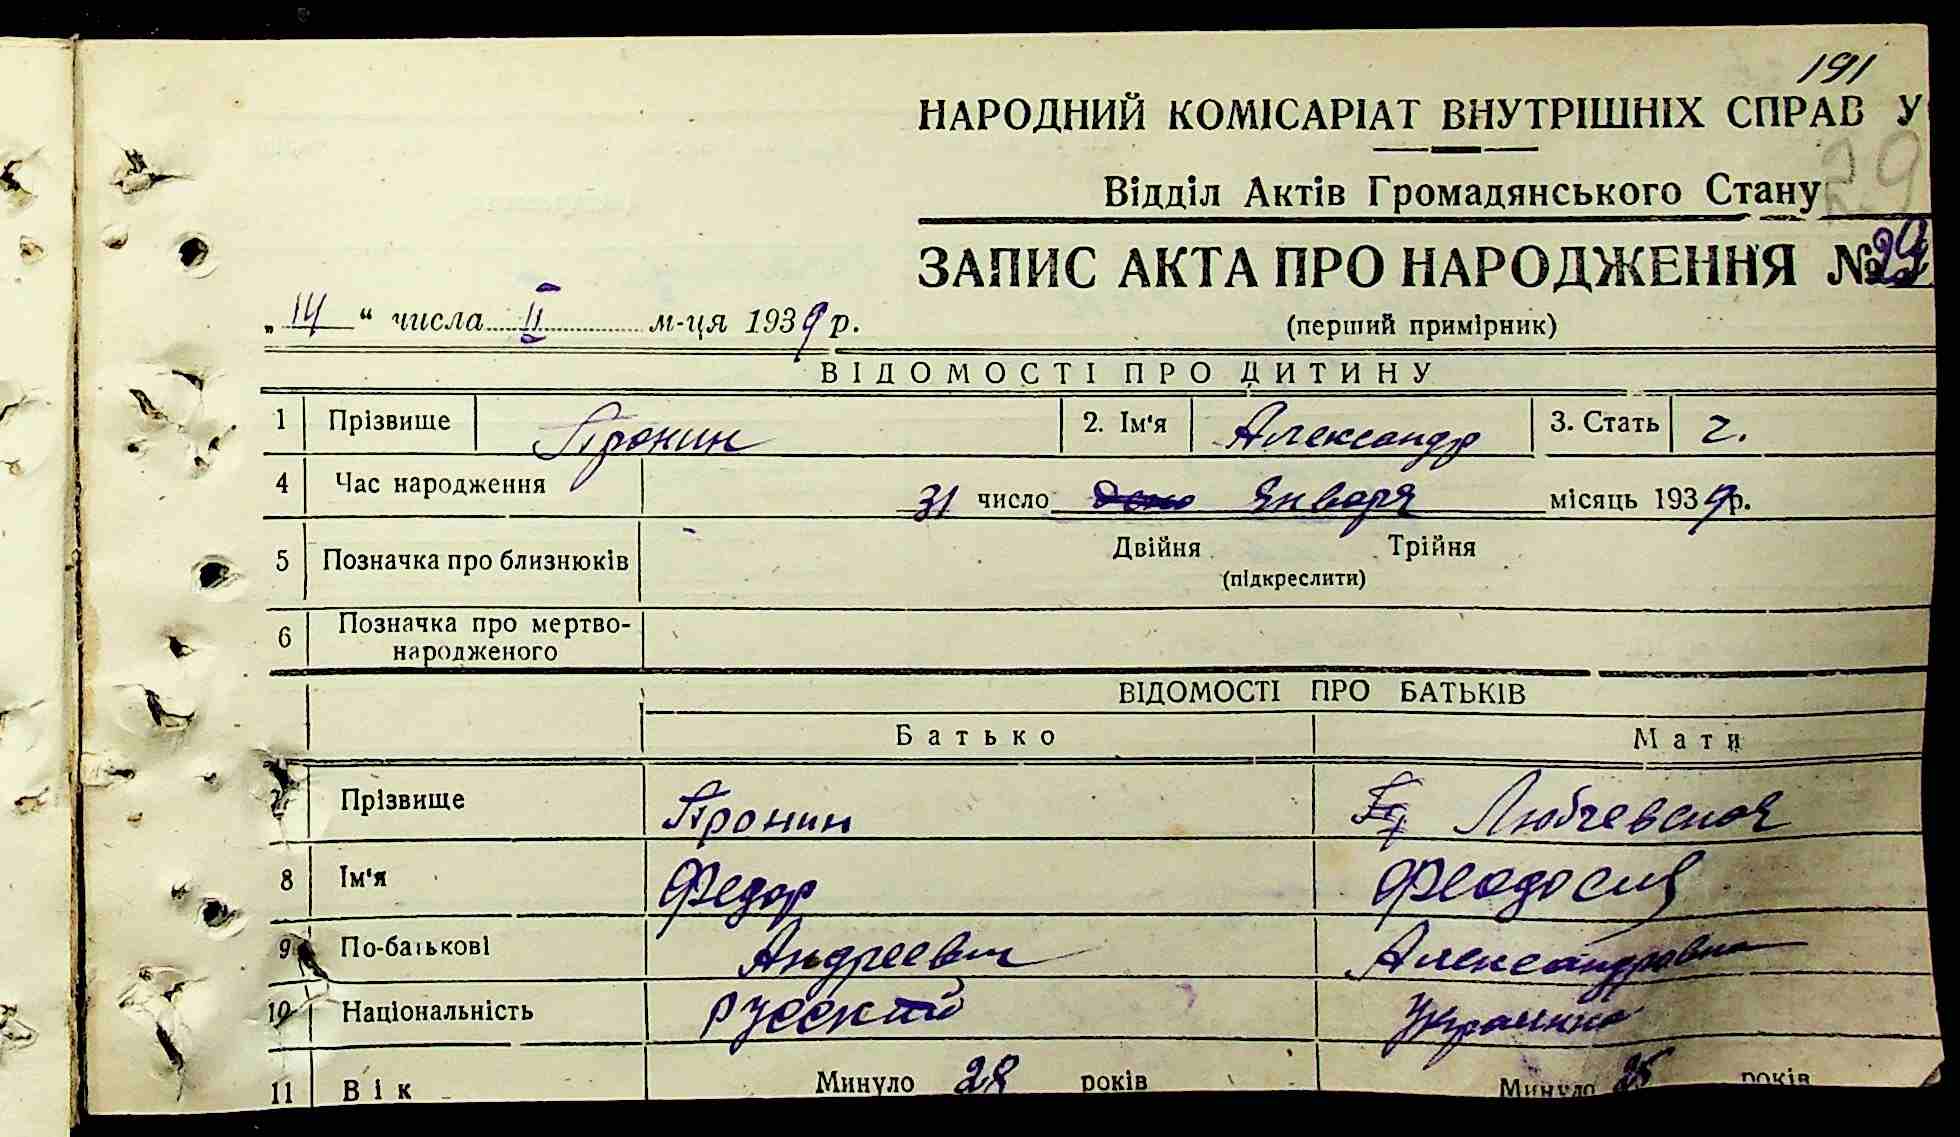 191
НАРОДНИЙ КОМІСАРІАТ ВНУТРІШНІХ СПРАВ У
29
Відділ Актів Громадянського Стану
ЗАПИС АКТА ПРО НАРОДЖЕННЯ № 29
„14“ числа II м-ця 1939 р.
(перший примірник)
ВІДОМОСТІ ПРО ДИТИНУ
1 Прізвище Пронин 2. Ім'я Александр 3. Стать ч.
4 Час народження 31 число января місяць 1939 р.
5 Позначка про близнюків Двійня Трійня
(підкреслити)
6 Позначка про мертво-
народженого
ВІДОМОСТІ ПРО БАТЬКІВ
Батько Мати
7 Прізвище Пронин Любчевская
8 Ім'я Федор Феодосия
9 По-батькові Андреевич Александровна
10 Національність русский украинка
11 Вік Минуло 28 років Минуло 25 років